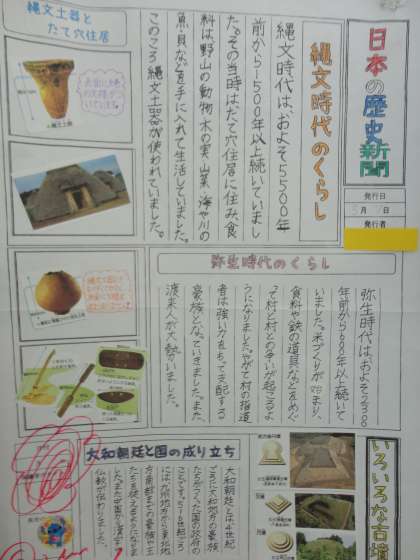 日本の歴史新聞
発行日
月 日
発行者
縄文時代のくらし
縄文時代は、およそ5500年
前から1500年以上続いていまし
た。その当時はたて穴住居に住み、食
料は、野山の動物、木の実、山菜、海や川の
魚、貝などを手に入れて生活していました。
このころ縄文土器が使われていました。
縄文土器と
たて穴住居
弥生時代のくらし
弥生時代は、およそ2300
年前から600年以上続いて
いました。米づくりが始まり、
食料や鉄の道具などをめぐ
って村と村との争いが起こるよ
うになりました。やがて村の指導
者は強い力をもって支配する
豪族となっていきました。また、
渡来人が大勢いました。
いろいろな古墳
大和朝廷と国の成り立ち
大和朝廷とは4世紀
ごろに大和地方の豪族
たちがつくった国の政府の
ことです。
仏教が伝わりました。